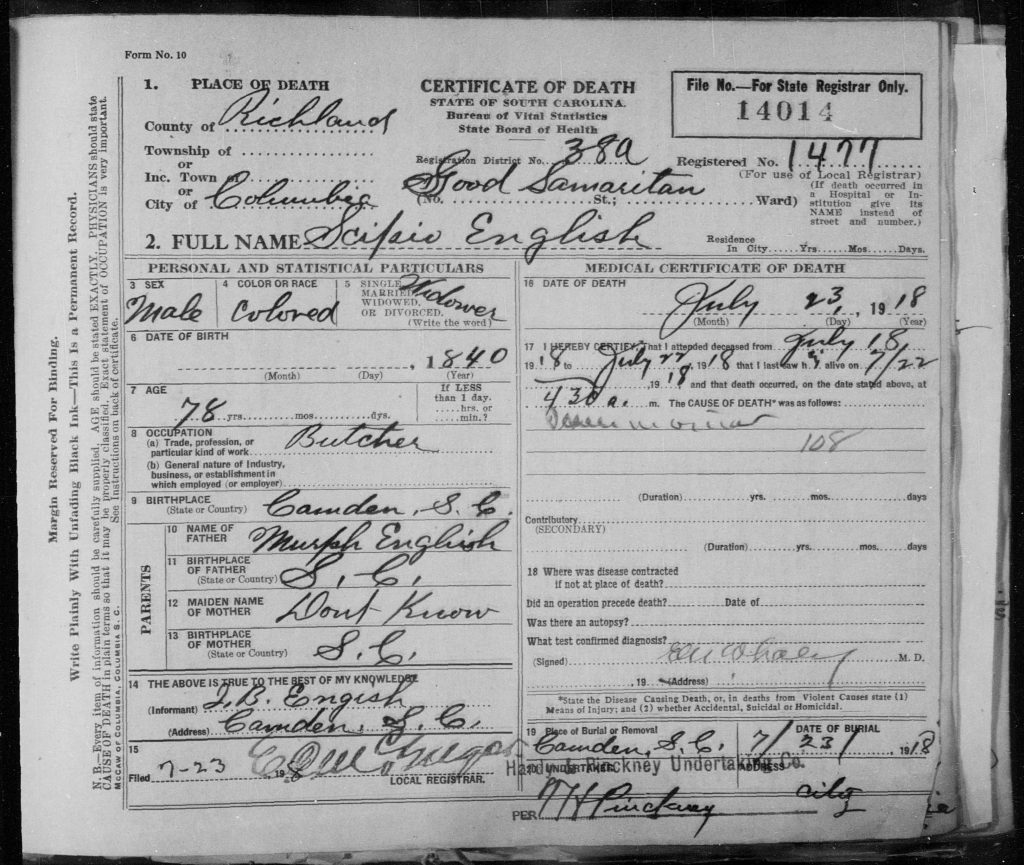 Form No. 10
1. PLACE OF DEATH
County of Richland
Township of
or
Inc. Town of
or
City of Columbia
CERTIFICATE OF DEATH
STATE OF SOUTH CAROLINA.
Bureau of Vital Statistics
State Board of Health
File No.—For State Registrar Only.
14014
Registration District No. 38a
Registered No. 1477
(For use of Local Registrar)
(No. Good Samaritan St.; Ward)
(If death occurred in
a Hospital or In-
stitution give its
NAME instead of
street and number.)
2. FULL NAME Scipio English
Residence
In City Yrs. Mos. Days.
PERSONAL AND STATISTICAL PARTICULARS
3 SEX
Male
4 COLOR OR RACE
Colored
5 SINGLE
MARRIED
WIDOWED,
OR DIVORCED.
(Write the word)
Widower
6 DATE OF BIRTH
, 1840
(Month) (Day) (Year)
7 AGE
78 yrs. mos. dys.
If LESS
than 1 day.
hrs. or
min.?
8 OCCUPATION
(a) Trade, profession, or
particular kind of work Butcher
(b) General nature of Industry,
business, or establishment in
which employed (or employer)
9 BIRTHPLACE
(State or Country) Camden, S. C.
PARENTS
10 NAME OF
FATHER Murph English
11 BIRTHPLACE
OF FATHER
(State or Country) S. C.
12 MAIDEN NAME
OF MOTHER Dont Know
13 BIRTHPLACE
OF MOTHER
(State or Country) S. C.
14 THE ABOVE IS TRUE TO THE BEST OF MY KNOWLEDGE
(Informant) J. B. Engish
(Address) Camden, S. C.
15
Filed 7-23 1918
LOCAL REGISTRAR.
MEDICAL CERTIFICATE OF DEATH
16 DATE OF DEATH
July 23, 1918
(Month) (Day) (Year)
17 I HEREBY CERTIFY, That I attended deceased from July 18,
1918 to July 22, 1918 that I last saw h alive on 7/22
, 1918 and that death occurred, on the date stated above, at
430 a. m. The CAUSE OF DEATH* was as follows:
108
(Duration) yrs. mos. days
Contributory
(SECONDARY)
(Duration) yrs. mos. days
18 Where was disease contracted
if not at place of death?
Did an operation precede death? Date of
Was there an autopsy?
What test confirmed diagnosis?
(Signed) M. D.
, 19 (Address)
*State the Disease Causing Death, or, in deaths from Violent Causes state (1)
Means of Injury; and (2) whether Accidental, Suicidal or Homicidal.
19 Place of Burial or Removal
Camden, S. C.
DATE OF BURIAL
7/23/ 1918
20 UNDERTAKER
ADDRESS
Pinckney Undertaking Co.
PER Pinckney
City
Margin Reserved For Binding.
Write Plainly With Unfading Black Ink—This Is a Permanent Record.
N. B.—Every item of information should be carefully supplied. AGE should be stated EXACTLY. PHYSICIANS should state
CAUSE OF DEATH in plain terms so that it may be properly classified. Exact statement of OCCUPATION is very important.
See Instructions on back of certificate.
McCAW OF COLUMBIA, COLUMBIA S. C.